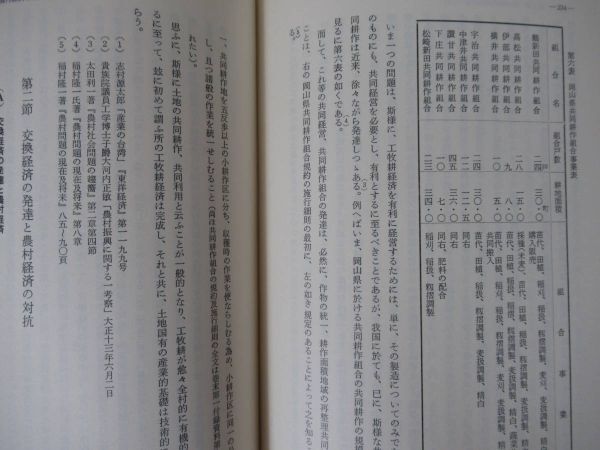 —234—
第六表　岡山県共同耕作組合事業表
組合名　組合戸数　耕地面積　組合事業
鶴新田共同耕作組合　二四　三〇・〇　苗代、田植、稲扱、籾摺調製、麦刈、麦扱調製、精白
購入販売
高松共同耕作組合　二八　一五・〇　採種(米麦)、苗代、田植、稲扱、籾摺調製、麦扱調製、精白、蔬菜
伊部共同耕作組合　九　八・〇　苗代、田植、稲扱、籾摺調製、麦刈、麦扱調製
横井共同耕作組合　一八　五・〇　苗代、田植、稲刈、稲扱、籾摺調製、麦刈、麦扱調製
共同搬入
宇治共同耕作組合　二四　三〇・〇　苗代、田植、稲扱、籾摺調製、麦扱調製、精白
中津井共同耕作組合　二四　二二・五　同右
讃甘共同耕作組合　四五　三六・〇　同右
下庄共同耕作組合　一〇　七・〇　同右、肥料の配合
松崎新田共同耕作組合　二三　三四・〇　稲刈、稲扱、籾摺調製
いま一つの問題は、斯様に、工牧耕経済を有利に経営するためには、単に、その製造についてのみで
のものにも、共同経営を必要とし、有利とするに至るべきことであるが、我国に於ても、已に、斯様な共
同耕作は近来、徐々ながら発達しつゝある。例へばいま、岡山県に於ける共同耕作組合の共同耕作の規模
見るに第六表の如くである。(4)
而して、これ等の共同経営、共同耕作組合の発達は、必然に、作物の統一、耕作面積地域の再整理共同
ことは、右の岡山県共同耕作組合規約の施行細則の最初に、左の如き規定のあることによって之を知る
一、共同耕作地を五反歩以上の小耕作区に分ち、収穫時の作業を便ならしむる為め、小耕作区に同一の
し、且つ諸般の作業を統一せしむること(尚ほ共同耕作組合の規約及施行細則の全文は巻末第一付録資料第
れたい)。
思ふに、斯様に土地の共同耕作、共同利用と云ふことが一般的となり、工牧耕が愈々全村的に有機的
るに至って、玆に初めて謂ふ所の工牧耕経済は完成し、それと共に、土地国有の産業的基礎は技術的
らう。
(1)　志村源太郎「産業の台湾」『東洋経済』第一一九九号
(2)　貴族院議員工学博士子爵大河内正敏「農村振興に関する一考察」大正十三年六月二日
(3)　太田利一著『農村社会問題の縷纂』第二章第四節
(4)　稲村隆一氏著『農村問題の現在及将来』第八章
(5)　稲村隆一著『農村問題の現在及将来』八五～九〇頁
第二節　交換経済の発達と農村経済の対抗
(A)　交換経済の発達と農村経済